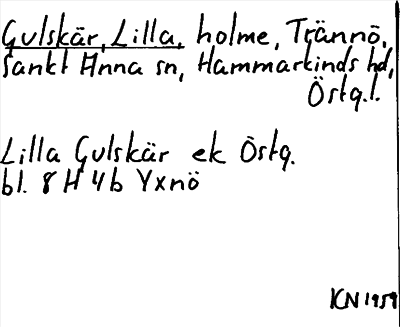 Gulskär, Lilla, holme, Trännö,
Sankt Anna sn, Hammarkinds hd,
Östg.l.
Lilla Gulskär ek Östg.
bl. 8 H 4b Yxnö
KN 1959